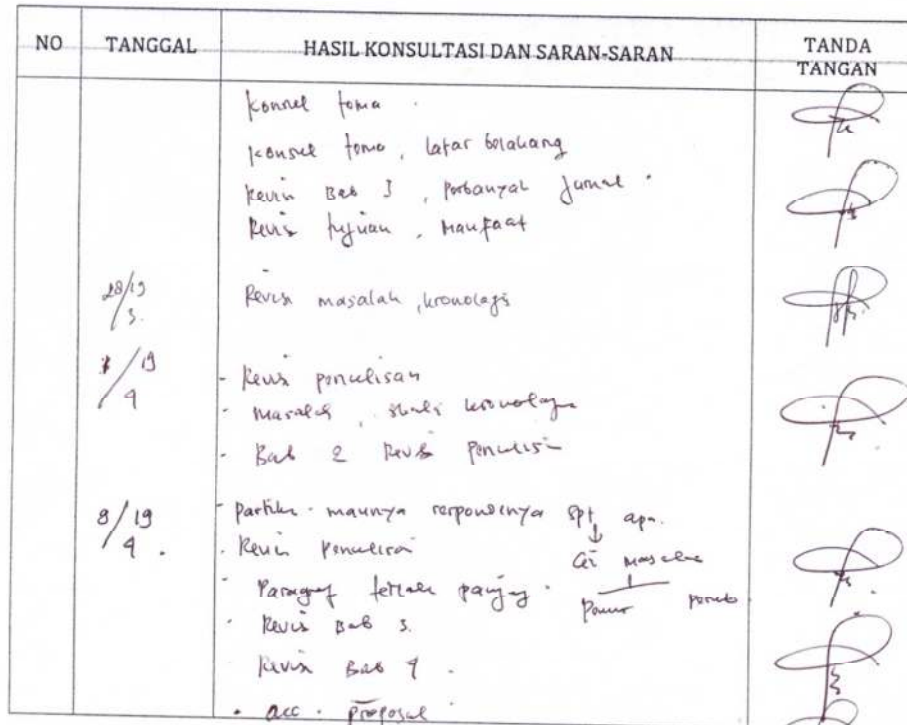 NO TANGGAL HASIL KONSULTASI DAN SARAN-SARAN TANDA TANGAN
Konsul tema .
Konsul tema , latar belakang
Revisi Bab 3 , perbanyak Jurnal .
Revisi tujuan , Manfaat
28/19 3. Revisi masalah , kronologis
/19 4 - Revisi penulisan
- Masalah , kronologis
- Bab 2 Revisi Penulisan
8/19 4 . - maunya respondennya spt apa.
- Revisi Penulisan
- Paragraf terlalu panjang .
- Revisi Bab 3.
Revisi Bab 4 .
- acc . proposal